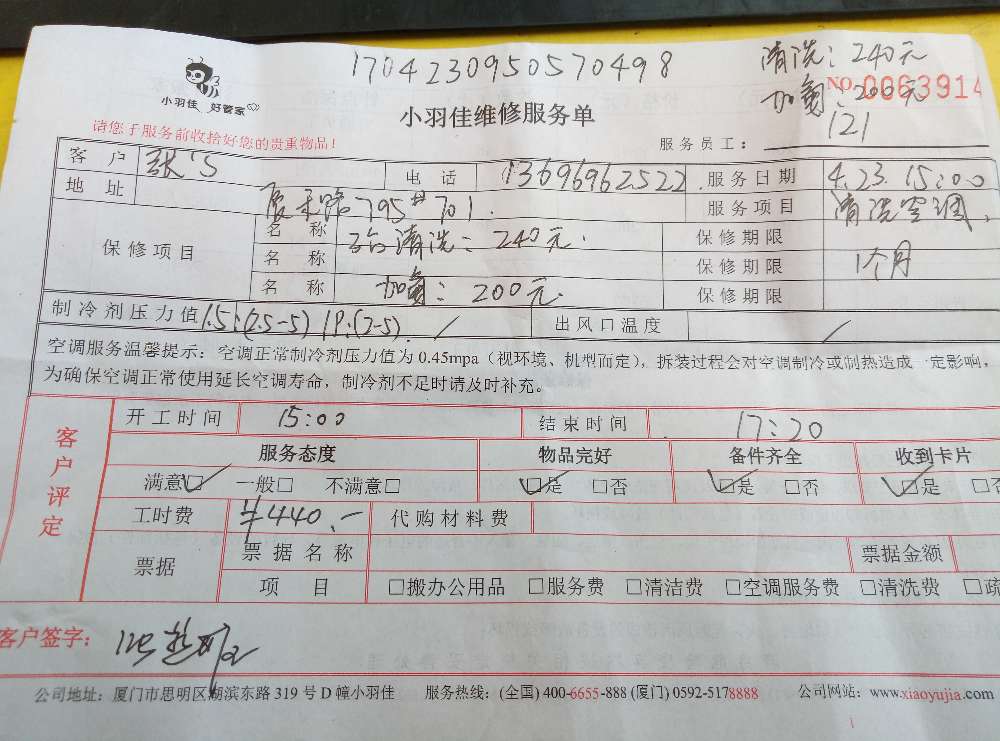 1704230950570498
清洗：240元
NO. 0063914
加氟：200元
小羽佳 好管家
小羽佳维修服务单
121
请您于服务前收拾好您的贵重物品！
服务员工：
客户 张'S 电话 13696962522 服务日期 4.23.15:00
地址 厦禾路795#701. 服务项目 清洗空调.
保修项目
名称 3台清洗：240元. 保修期限
名称 保修期限 1个月
名称 加氟：200元. 保修期限
制冷剂压力值 1.5:(2.5-5) 1P.(2-5) / 出风口温度 /
空调服务温馨提示：空调正常制冷剂压力值为 0.45mpa（视环境、机型而定），拆装过程会对空调制冷或制热造成一定影响，
为确保空调正常使用延长空调寿命，制冷剂不足时请及时补充。
客户评定
开工时间 15:00 结束时间 17:20
服务态度 物品完好 备件齐全 收到卡片
满意☑ 一般□ 不满意□ ☑是 □否 ☑是 □否 ☑是 □否
工时费 ¥440.- 代购材料费
票据 票据名称 票据金额
项目 □搬办公用品 □服务费 □清洁费 □空调服务费 □清洗费 □疏
客户签字：
公司地址：厦门市思明区湖滨东路 319 号 D 幢小羽佳 服务热线：(全国) 400-6655-888 (厦门) 0592-5178888 公司网站：www.xiaoyujia.com